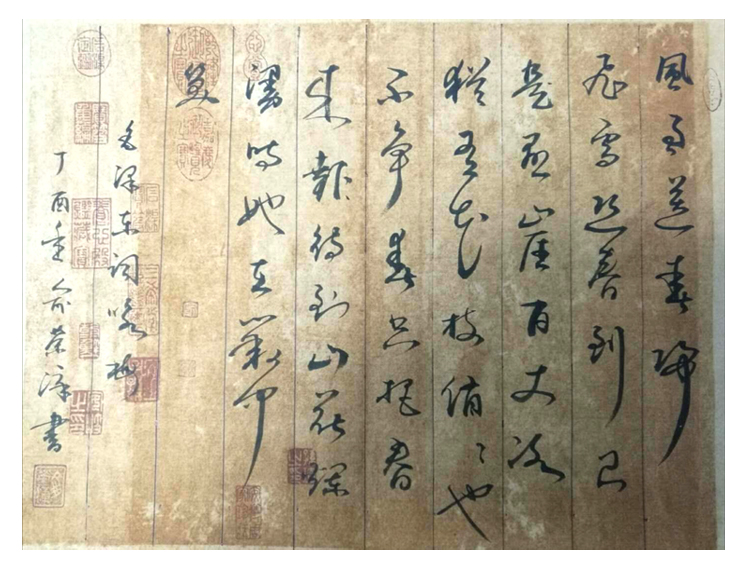 風雨送春歸
飛雪迎春到已
是懸崖百丈冰
猶有花枝俏〻也
不争春只把春
来報待到山花爛
漫時她在叢中
笑
毛澤東詞咏梅
丁酉俞荣書